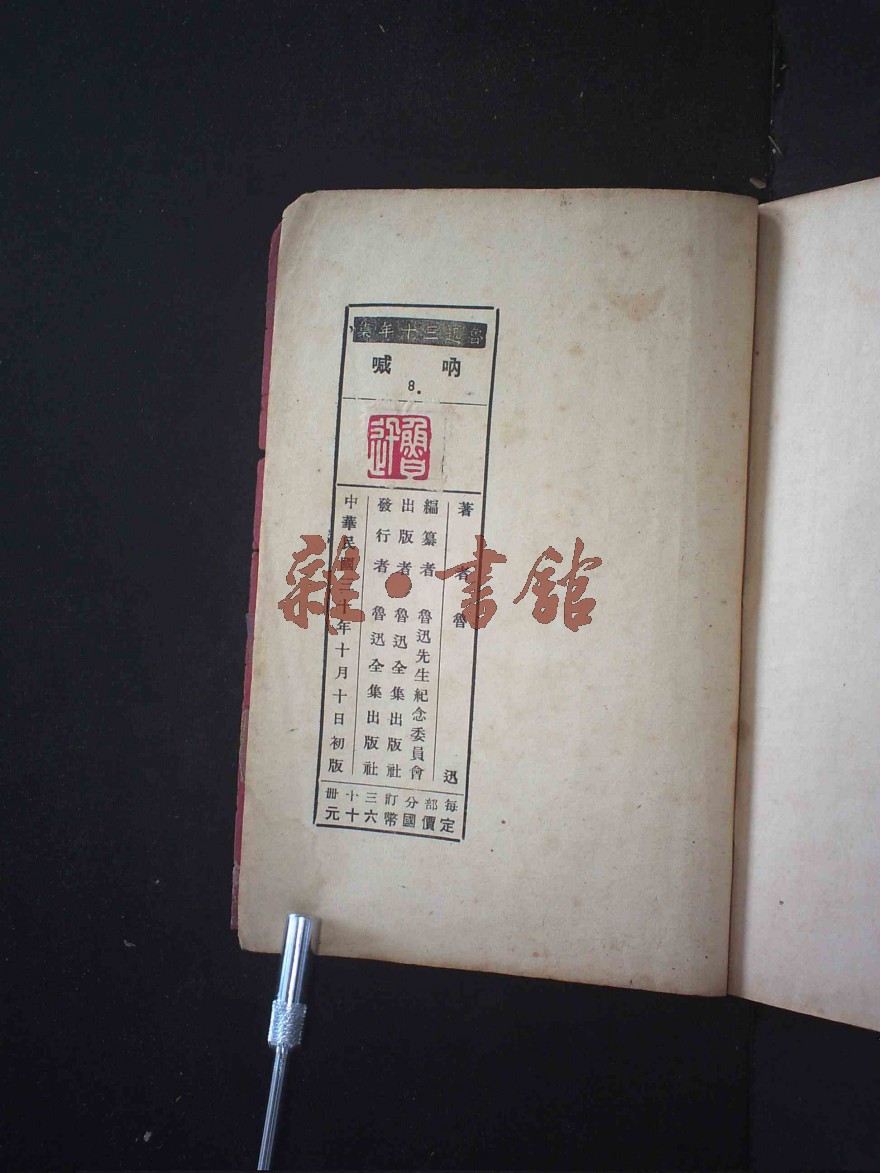 魯迅三十年集
吶喊
8.
魯迅
著者 魯迅
編纂者 魯迅先生紀念委員會
出版者 魯迅全集出版社
發行者 魯迅全集出版社
中華民國三十年十月十日初版
每部分訂三十冊
定價國幣六十元
雜·書館